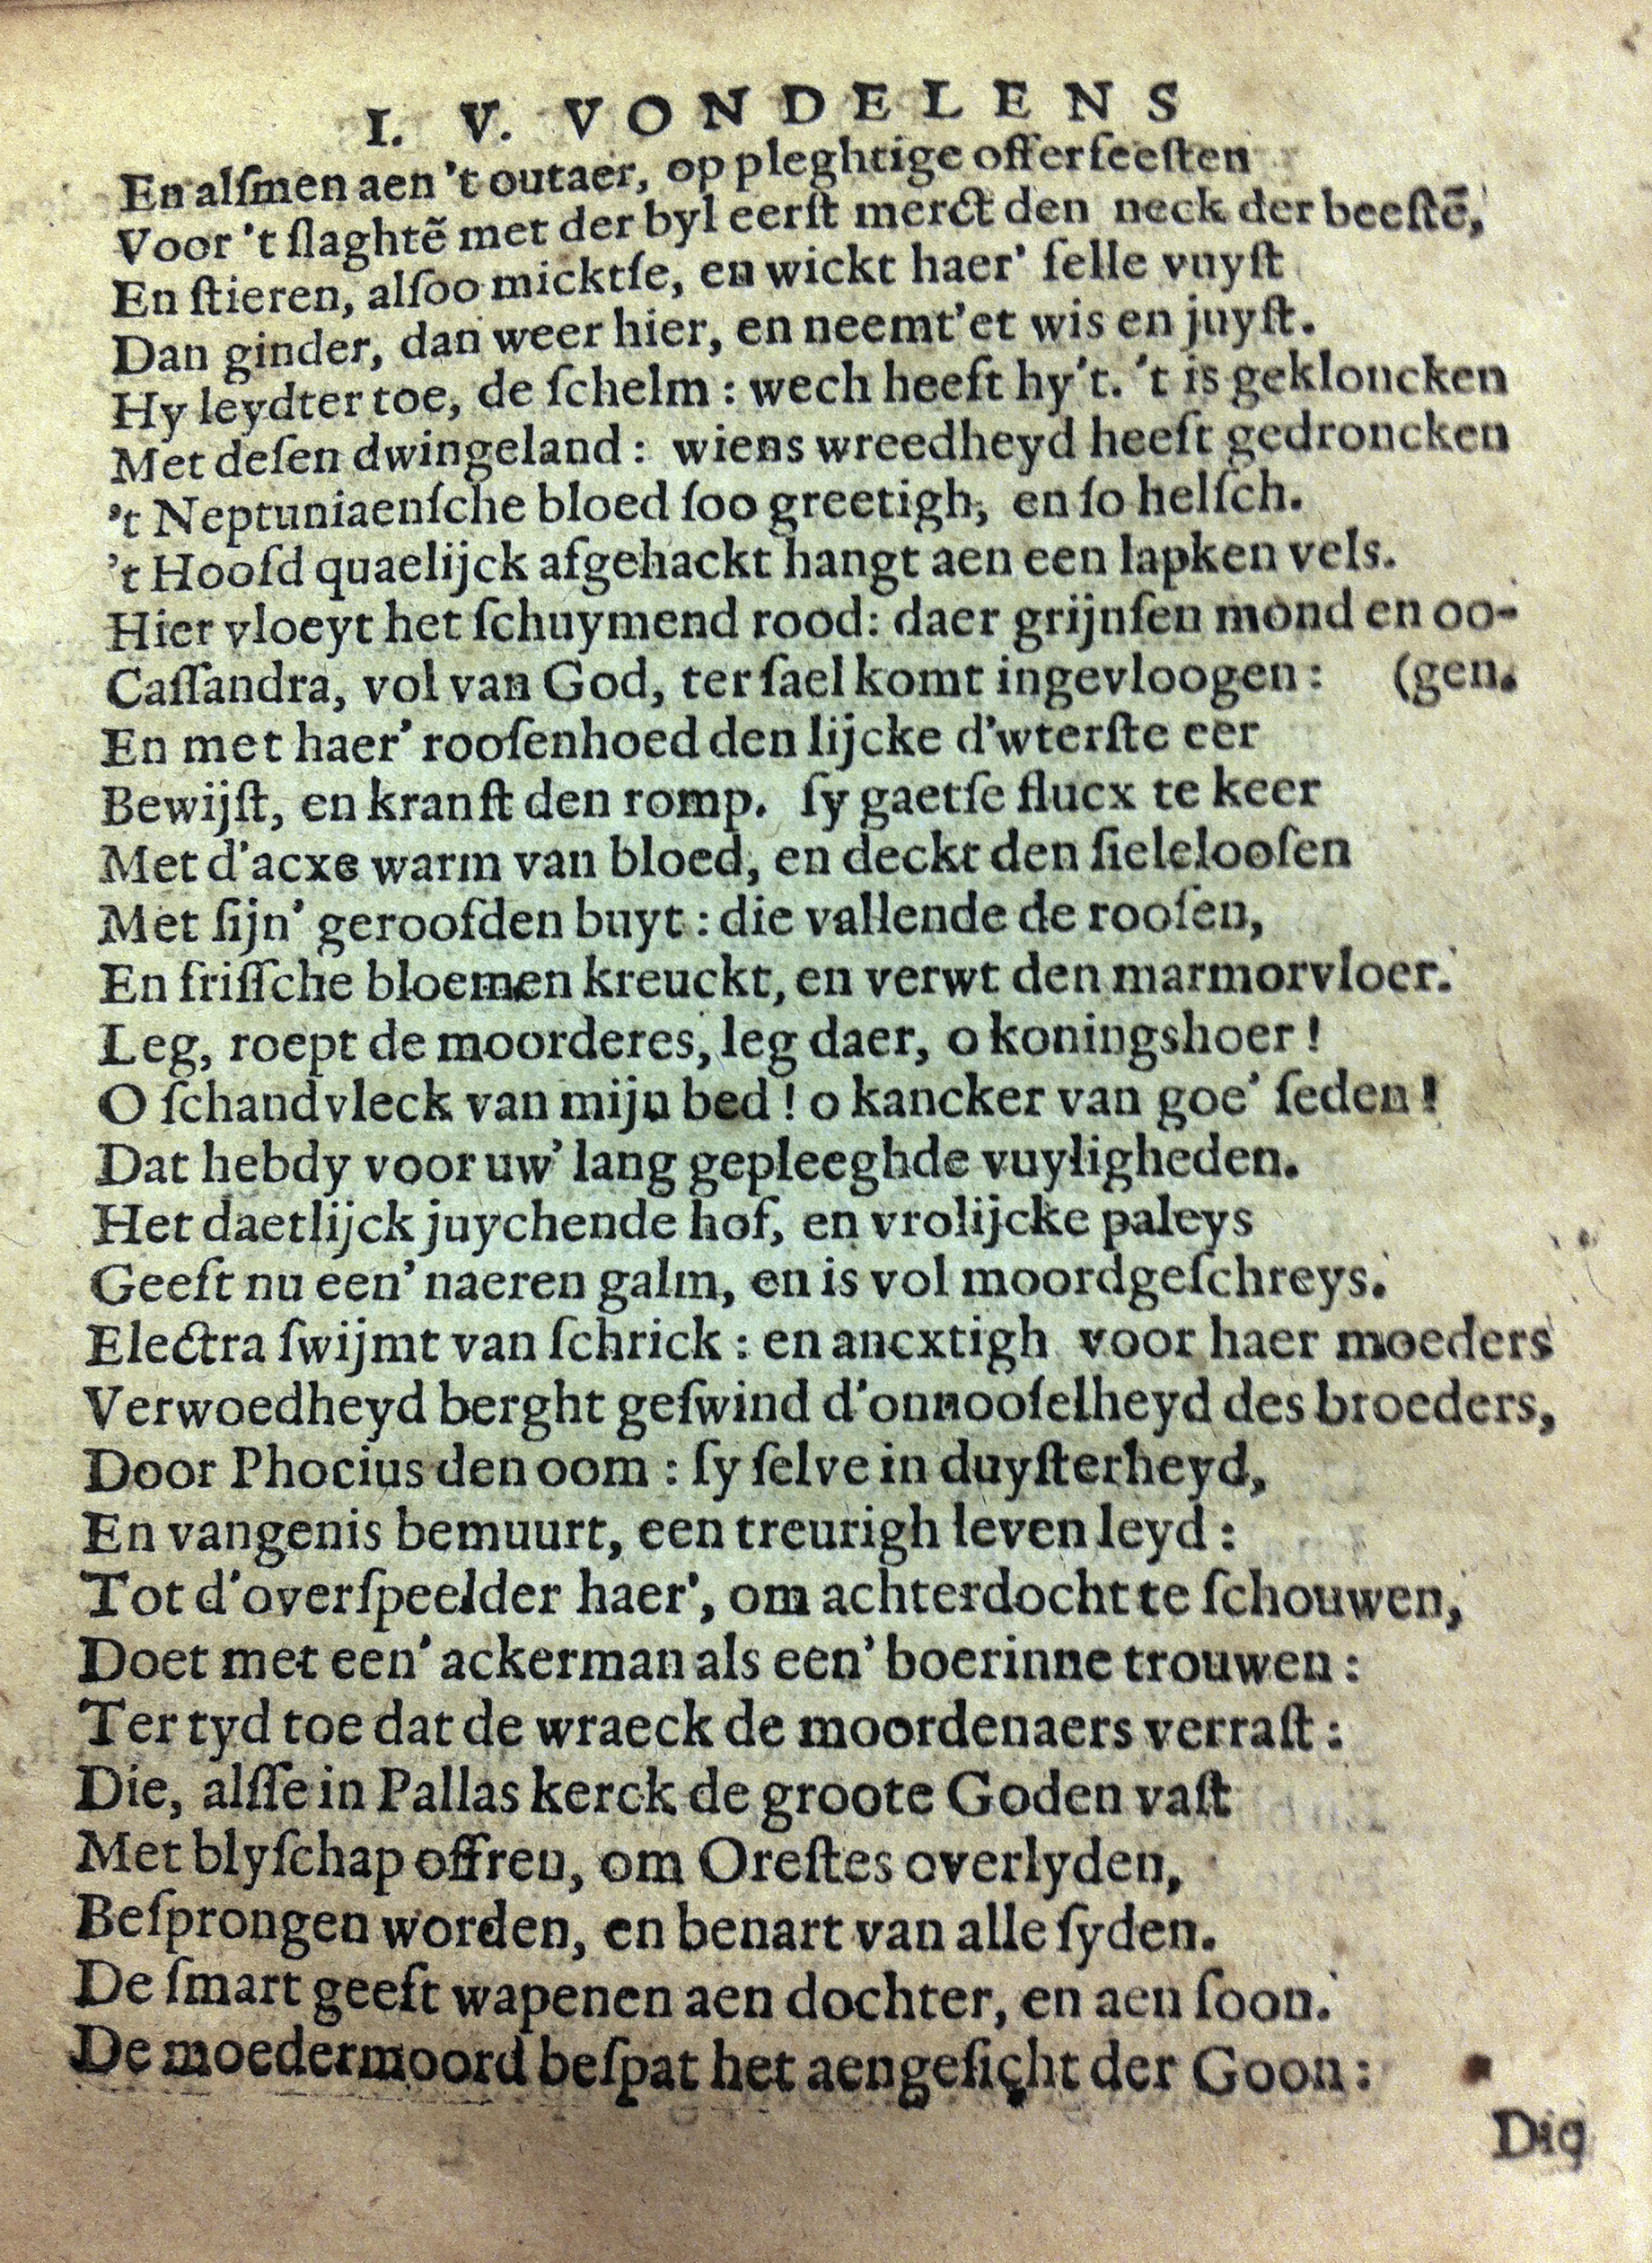 I. V. VONDELENS
En alſmen aen 't outaer, op pleghtige offerfeeſten
Voor 't ſlaghtẽ met der byl eerſt merct den neck der beeſtẽ,
En ſtieren, alſoo micktſe, en wickt haer' felle vuyſt
Dan ginder, dan weer hier, en neemt'et wis en juyſt.
Hy leydter toe, de ſchelm: wech heeft hy't. 't is gekloncken
Met deſen dwingeland: wiens wreedheyd heeft gedroncken
't Neptuniaenſche bloed ſoo greetigh, en ſo helſch.
't Hoofd quaelijck afgehackt hangt aen een lapken vels.
Hier vloeyt het ſchuymend rood: daer grijnſen mond en oo-
Caſſandra, vol van God, ter ſael komt ingevloogen: (gen.
En met haer' rooſenhoed den lijcke d'wterſte eer
Bewijſt, en kranſt den romp. ſy gaetſe flucx te keer
Met d'acxe warm van bloed, en deckt den ſielelooſen
Met ſijn' geroofden buyt: die vallende de rooſen,
En friſſche bloemen kreuckt, en verwt den marmorvloer.
Leg, roept de moorderes, leg daer, o koningshoer!
O ſchandvleck van mijn bed! o kancker van goe' ſeden!
Dat hebdy voor uw' lang gepleeghde vuyligheden.
Het daetlijck juychende hof, en vrolijcke paleys
Geeft nu een' naeren galm, en is vol moordgeſchreys.
Electra ſwijmt van ſchrick: en ancxtigh voor haer moeders
Verwoedheyd berght geſwind d'onnooſelheyd des broeders,
Door Phocius den oom: ſy ſelve in duyſterheyd,
En vangenis bemuurt, een treurigh leven leyd:
Tot d'overſpeelder haer', om achterdocht te ſchouwen,
Doet met een' ackerman als een' boerinne trouwen:
Ter tyd toe dat de wraeck de moordenaers verraſt:
Die, alſſe in Pallas kerck de groote Goden vaſt
Met blyſchap offren, om Oreſtes overlyden,
Beſprongen worden, en benart van alle ſyden.
De ſmart geeft wapenen aen dochter, en aen ſoon.
De moedermoord beſpat het aengeſicht der Goon:
Dig